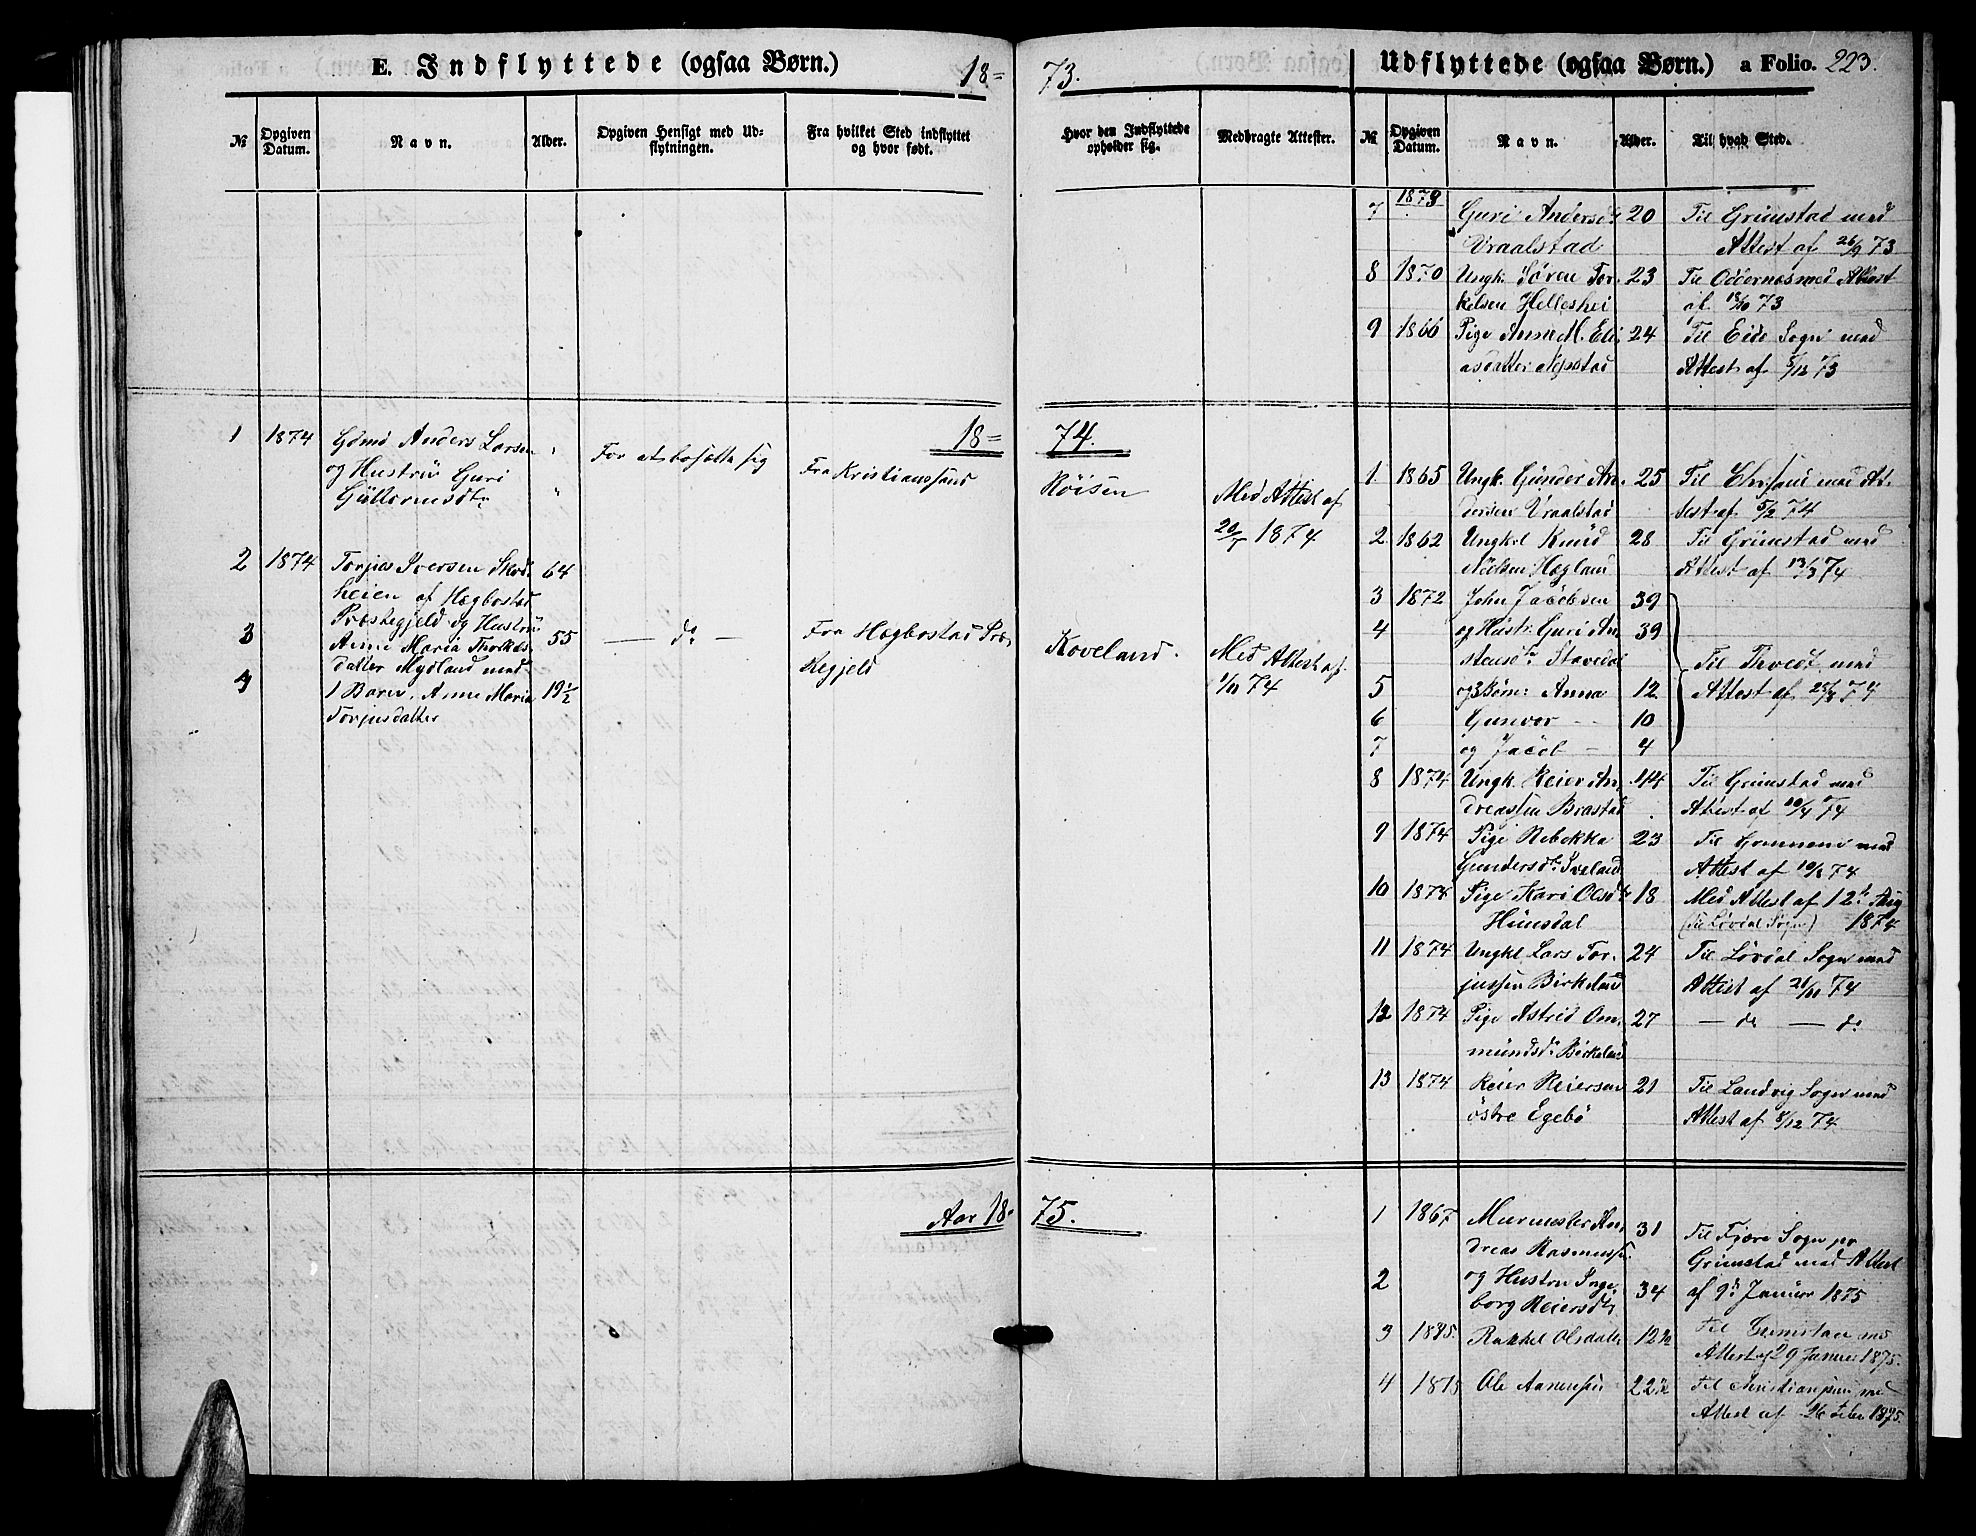 E. Indflyttede (ogsaa Børn.)
18=
73.
Udflyttede (ogsaa Børn.) a Folio. 223.
№
Opgiven Datum.
Navn.
Alder.
Opgiven Hensigt med Ud-
flytningen.
Fra hvilket Sted indflyttet
og hvor født.
Hvor den Indflyttede
opholder sig.
Medbragte Attester.
№
Opgiven Datum.
Navn.
Alder.
Til hvad Sted.
7 1873 Guri Andersd. 20 Til Grimstad med
Vraalstad Attest af 26/9 73
8 1870 Ungk. Sören Tor- 23 Til Oddernes med Attest
kelsen Helleshei af 13/10 73
9 1866 Pige Anna M. Eli- 24 Til Eide Sogn med
asdatter Nepstad Attest af 5/12 73
18=
74.
1 1874 Gdmd Anders Larsen
og Hustru Guri
Guttormsdtr
For at bosætte sig
Fra Kristianssand
Röisen
Med Attest af
1874
2 1874 Torjus Iversen 64
heien af Hægbostad
Præstegjeld og Hustru
3 Anne Maria 55
datter Mydland med
4 1 Barn, Anne Maria 19 1/2
Torjusdatter
— do —
Fra Hægbostad Præ-
stegjeld
Koveland.
Med Attest af
1/10 74
1. 1865 Ungk. Gunder An- 25 Til Chrsand med At-
dersen Vraalstad test af 5/2 74
2. 1862 Ungkl Knud 28 Til Grimstad med
Nielsen Hægland Attest af 13/3 74
3 1872 John Jacobsen 39
4 og Hustr. Guri An- 39
stensdtr Stavedal
Til Thvedt med
5 og Børn: Anna 12 Attest af 74
6 Gunvor - - 10
7 og Jacob - 4
8 1874 Ungk. Reier An- 44 Til Grimstad med
dreassen Brastad Attest af 20/4 74
9 1874 Pige Rebekka 23 Til med
Gundersdtr Sveland Attest af 74
10 1874 Pige Kari Olsdtr 18 Med Attest af 12te Aug
Himsdal (til Lövdal Sogn) 1874
11 1874 Ungkl Lars Tor- 24 Til Lövdal Sogn med
jussen Birkeland Attest af 21/11 74
12 1874 Pige Astrid Om- 27 — do — do
mundsdr Birkeland
13 1874 Reier Reiersen 21 Til Landvig Sogn med
östre Egebö Attest af 8/12 74
Aar 18=
75.
1 1867 Murmester An- 31 Til Fjære Sogn pr
dreas Rasmussen Grimstad med Attest
2 og Hustru Inge- 34 af 9de Januar 1875
borg Reiersdtr
3 1875. Rakkel Olsdatter 12 Til Grimstad med
Attest af 29 Januar 1875.
4 1875 Ole Aanensen 22 Til Christianssand med
Attest af 26 Feber 1875.